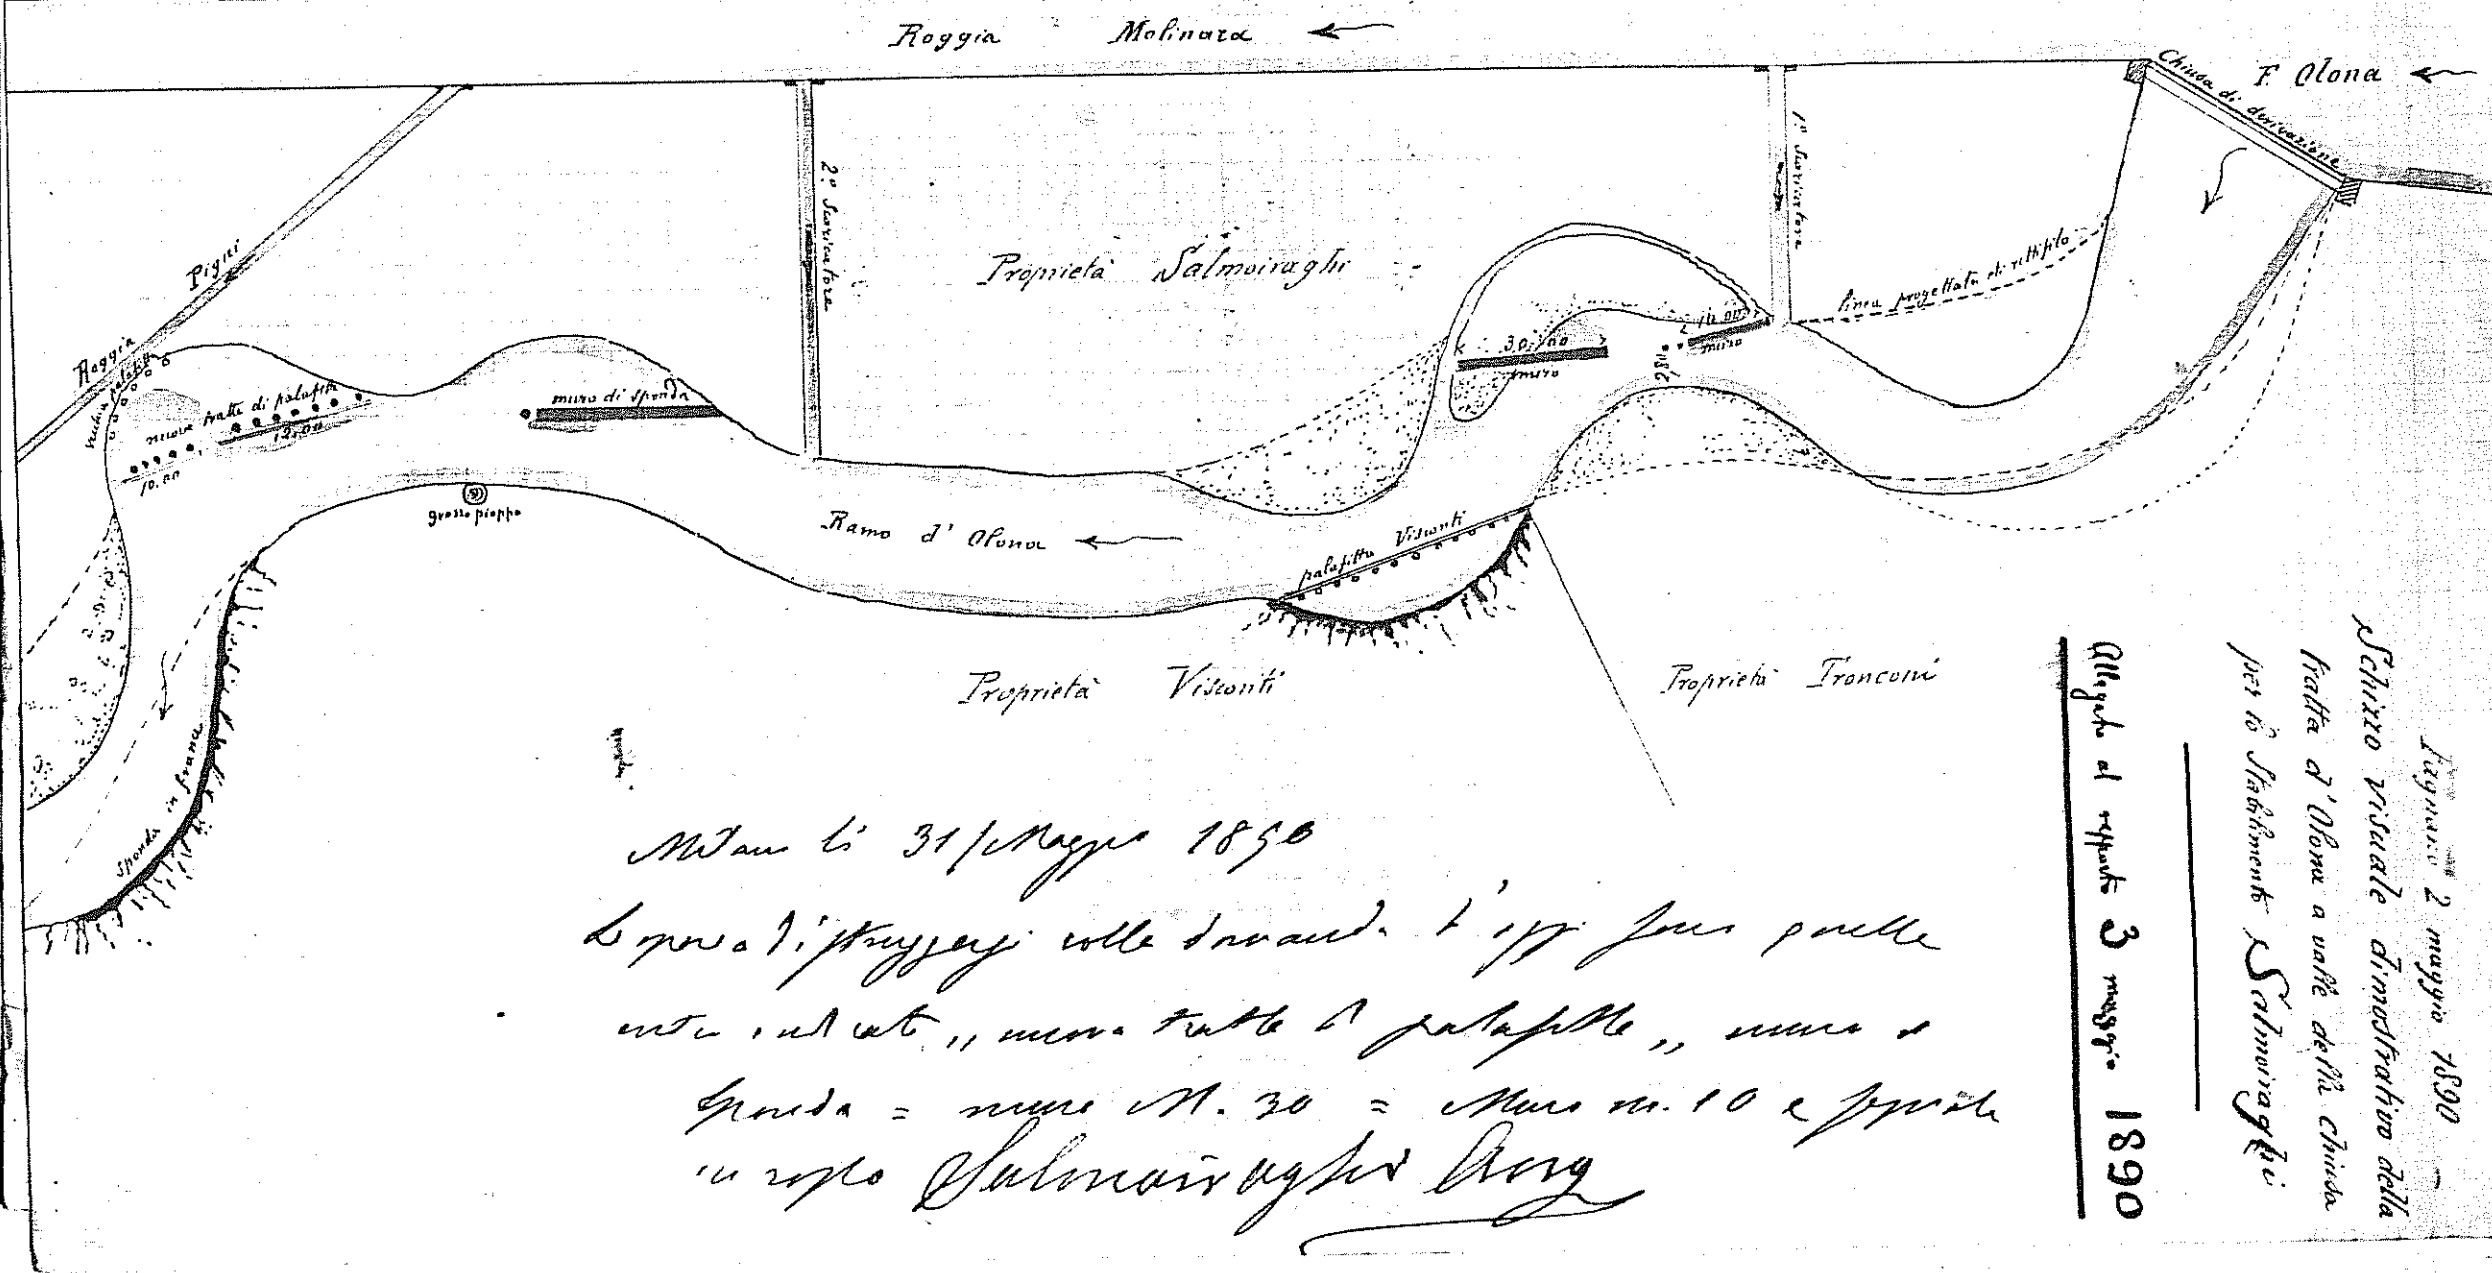 Roggia Molinara
F. Olona
Chiusa di derivazione
1.º Scaricatore
2.º Scaricatore
Roggia Pigni
Proprietà Salmoiraghi
linea progettata di rettifilo
vecchia palafitta
nuove tratte di palafitta
12.00
10.00
muro di sponda
30.00
muro
muro
grosso pioppo
Ramo d' Olona
palafitta Visconti
Proprietà Visconti
Proprietà Tronconi
sponda in frana
2 maggio 1890
Schizzo visuale dimostrativo della
tratta d' Olona a valle della chiusa
per lo Stabilimento Salmoiraghi
Allegato al rapporto 3 maggio 1890
Milano li 31 Maggio 1890
colla domanda d'oggi sono quelle
nuove tratte di palafitte „ muro di
sponda = muro M. 30 = Muro m. 10 e
Salmoiraghi